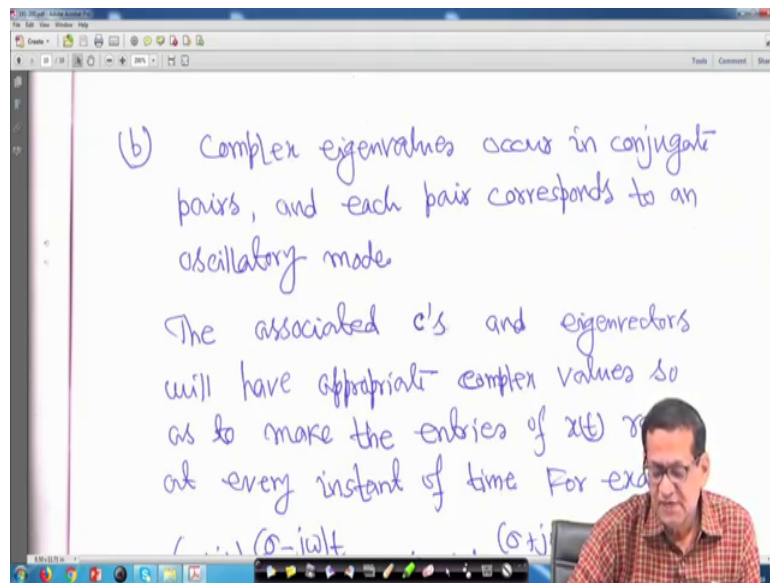 File Edit View Window Help
Create
Tools Comment
(b) Complex eigenvalues occur in conjugate
pairs, and each pair corresponds to an
oscillatory mode.
The associated c's and eigenvectors
will have appropriate complex values so
as to make the entries of x(t)
at every instant of time For
(σ-jω)t (σ+j